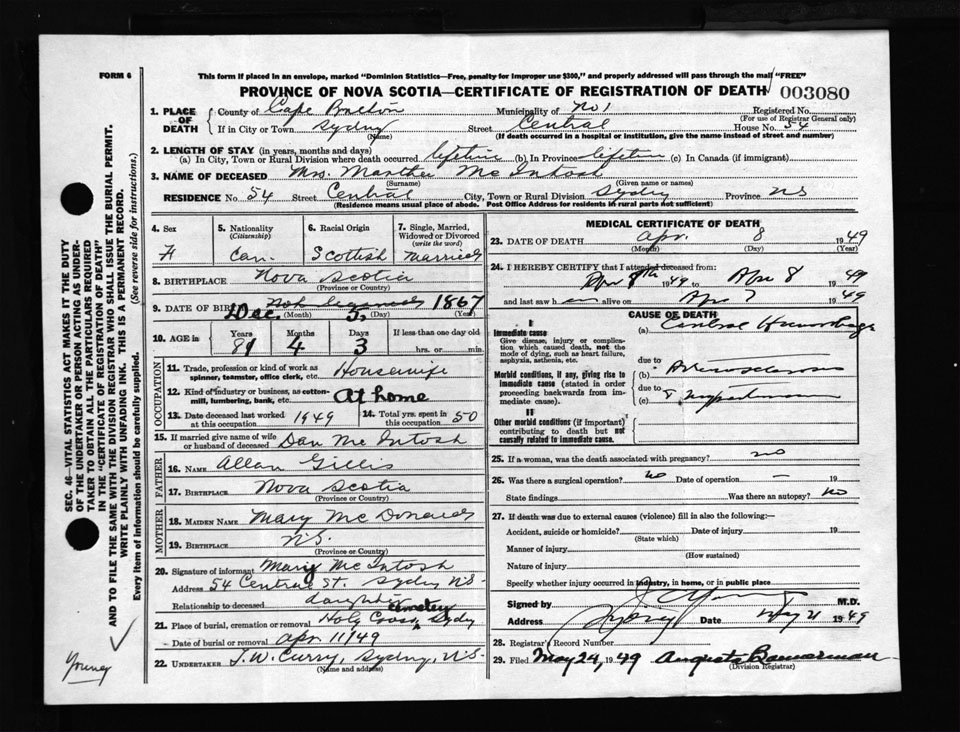 FORM 6
This form if placed in an envelope, marked "Dominion Statistics—Free, penalty for improper use $300," and properly addressed will pass through the mail "FREE"
PROVINCE OF NOVA SCOTIA—CERTIFICATE OF REGISTRATION OF DEATH 003080
1. PLACE OF DEATH
County of Cape Breton Municipality of No 1 Registered No.
(For use of Registrar General only)
If in City or Town Sydney Street Central House No. 54
(Name) (If death occurred in a hospital or institution, give the name instead of street and number)
2. LENGTH OF STAY (in years, months and days)
(a) In City, Town or Rural Division where death occurred lifetime (b) In Province lifetime (c) In Canada (if immigrant)
3. NAME OF DECEASED Mrs. Martha Mc Intosh
(Surname) (Given name or names)
RESIDENCE No. 54 Street Central City, Town or Rural Division Sydney Province NS
(Residence means usual place of abode. Post Office Address for residents in rural parts not sufficient)
4. Sex F
5. Nationality (Citizenship) Can.
6. Racial Origin Scottish
7. Single, Married, Widowed or Divorced (write the word) Married
8. BIRTHPLACE Nova Scotia
(Province or Country)
9. DATE OF BIRTH Dec. 5, 1867
(Month) (Day) (Year)
10. AGE in Years 81 Months 4 Days 3 If less than one day old hrs. or min.
OCCUPATION
11. Trade, profession or kind of work as spinner, teamster, office clerk, etc. Housewife
12. Kind of industry or business, as cotton-mill, lumbering, bank, etc. At home
13. Date deceased last worked at this occupation 1949
14. Total yrs. spent in this occupation 50
15. If married give name of wife or husband of deceased Dan Mc Intosh
FATHER
16. NAME Allan Gillis
17. BIRTHPLACE Nova Scotia
(Province or Country)
MOTHER
18. MAIDEN NAME Mary Mc Donald
19. BIRTHPLACE N.S.
(Province or Country)
20. Signature of informant Mary Mc Intosh
Address 54 Central St. Sydney N.S.
Relationship to deceased daughter
21. Place of burial, cremation or removal Holy Cross cemetery Sydney
Date of burial or removal Apr 11/49
22. UNDERTAKER T. W. Curry, Sydney, N.S.
(Name and address)
MEDICAL CERTIFICATE OF DEATH
23. DATE OF DEATH Apr. 8 1949
(Month) (Day) (Year)
24. I HEREBY CERTIFY that I attended deceased from:
1949 to Apr 8 1949
and last saw h er alive on Apr 7 1949
CAUSE OF DEATH
I
Immediate cause (a) Cerebral Hemorrhage
Give disease, injury or complication which caused death, not the mode of dying, such as heart failure, asphyxia, asthenia, etc.
due to
Morbid conditions, if any, giving rise to immediate cause (stated in order proceeding backwards from immediate cause). (b) Arteriosclerosis
due to
(c) & Hypertension
II
Other morbid conditions (if important) contributing to death but not causally related to immediate cause.
25. If a woman, was the death associated with pregnancy? no
26. Was there a surgical operation? no Date of operation — 19
State findings Was there an autopsy? No
27. If death was due to external causes (violence) fill in also the following:—
Accident, suicide or homicide? Date of injury 19
(State which)
Manner of injury
(How sustained)
Nature of injury
Specify whether injury occurred in industry, in home, or in public place
Signed by M.D.
Address Sydney Date May 21 1949
28. Registrar's Record Number
29. Filed May 24, 1949 Augusta Bannerman
(Division Registrar)
SEC. 46—VITAL STATISTICS ACT MAKES IT THE DUTY
OF THE UNDERTAKER OR PERSON ACTING AS UNDERTAKER TO OBTAIN ALL THE PARTICULARS REQUIRED
IN THE "CERTIFICATE OF REGISTRATION OF DEATH"
AND TO FILE THE SAME WITH THE DIVISION REGISTRAR WHO SHALL ISSUE THE BURIAL PERMIT.
WRITE PLAINLY WITH UNFADING INK. THIS IS A PERMANENT RECORD.
Every item of information should be carefully supplied. (See reverse side for instructions.)
Young